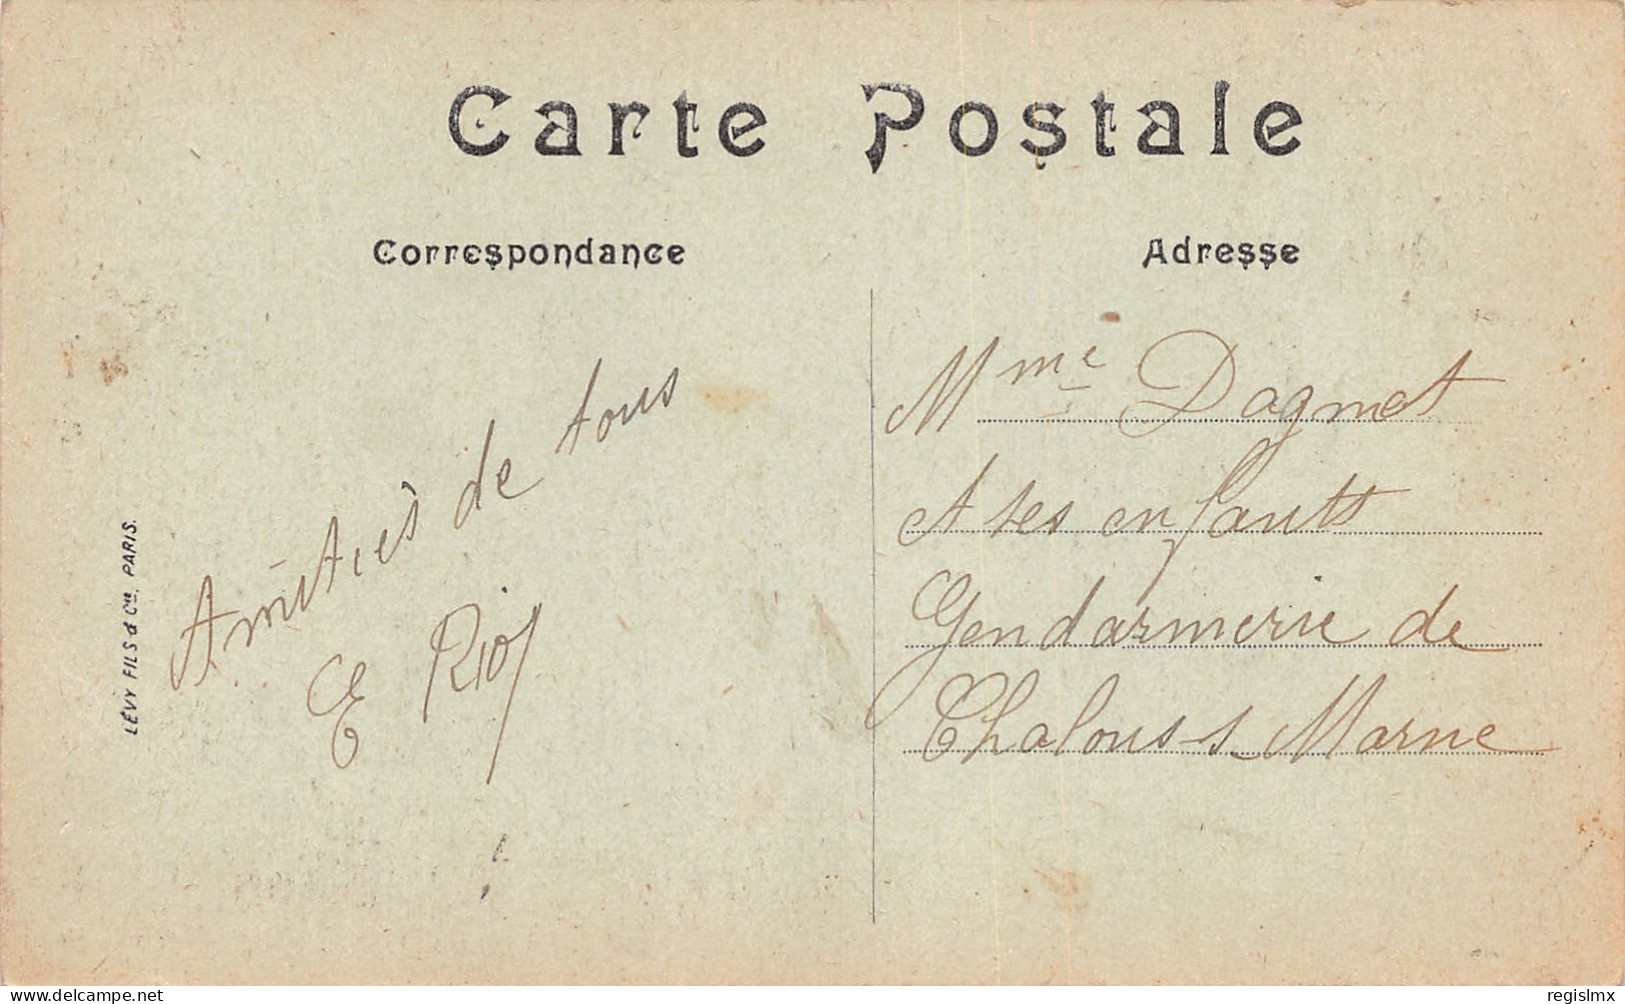 Carte Postale
Correspondance
Adresse
Amitiés de tous
E Rios
Mme Dagnet
et ses enfants
Gendarmerie de
Chalons s Marne
LÉVY FILS & Cie, PARIS.
delcampe.net
regislmx